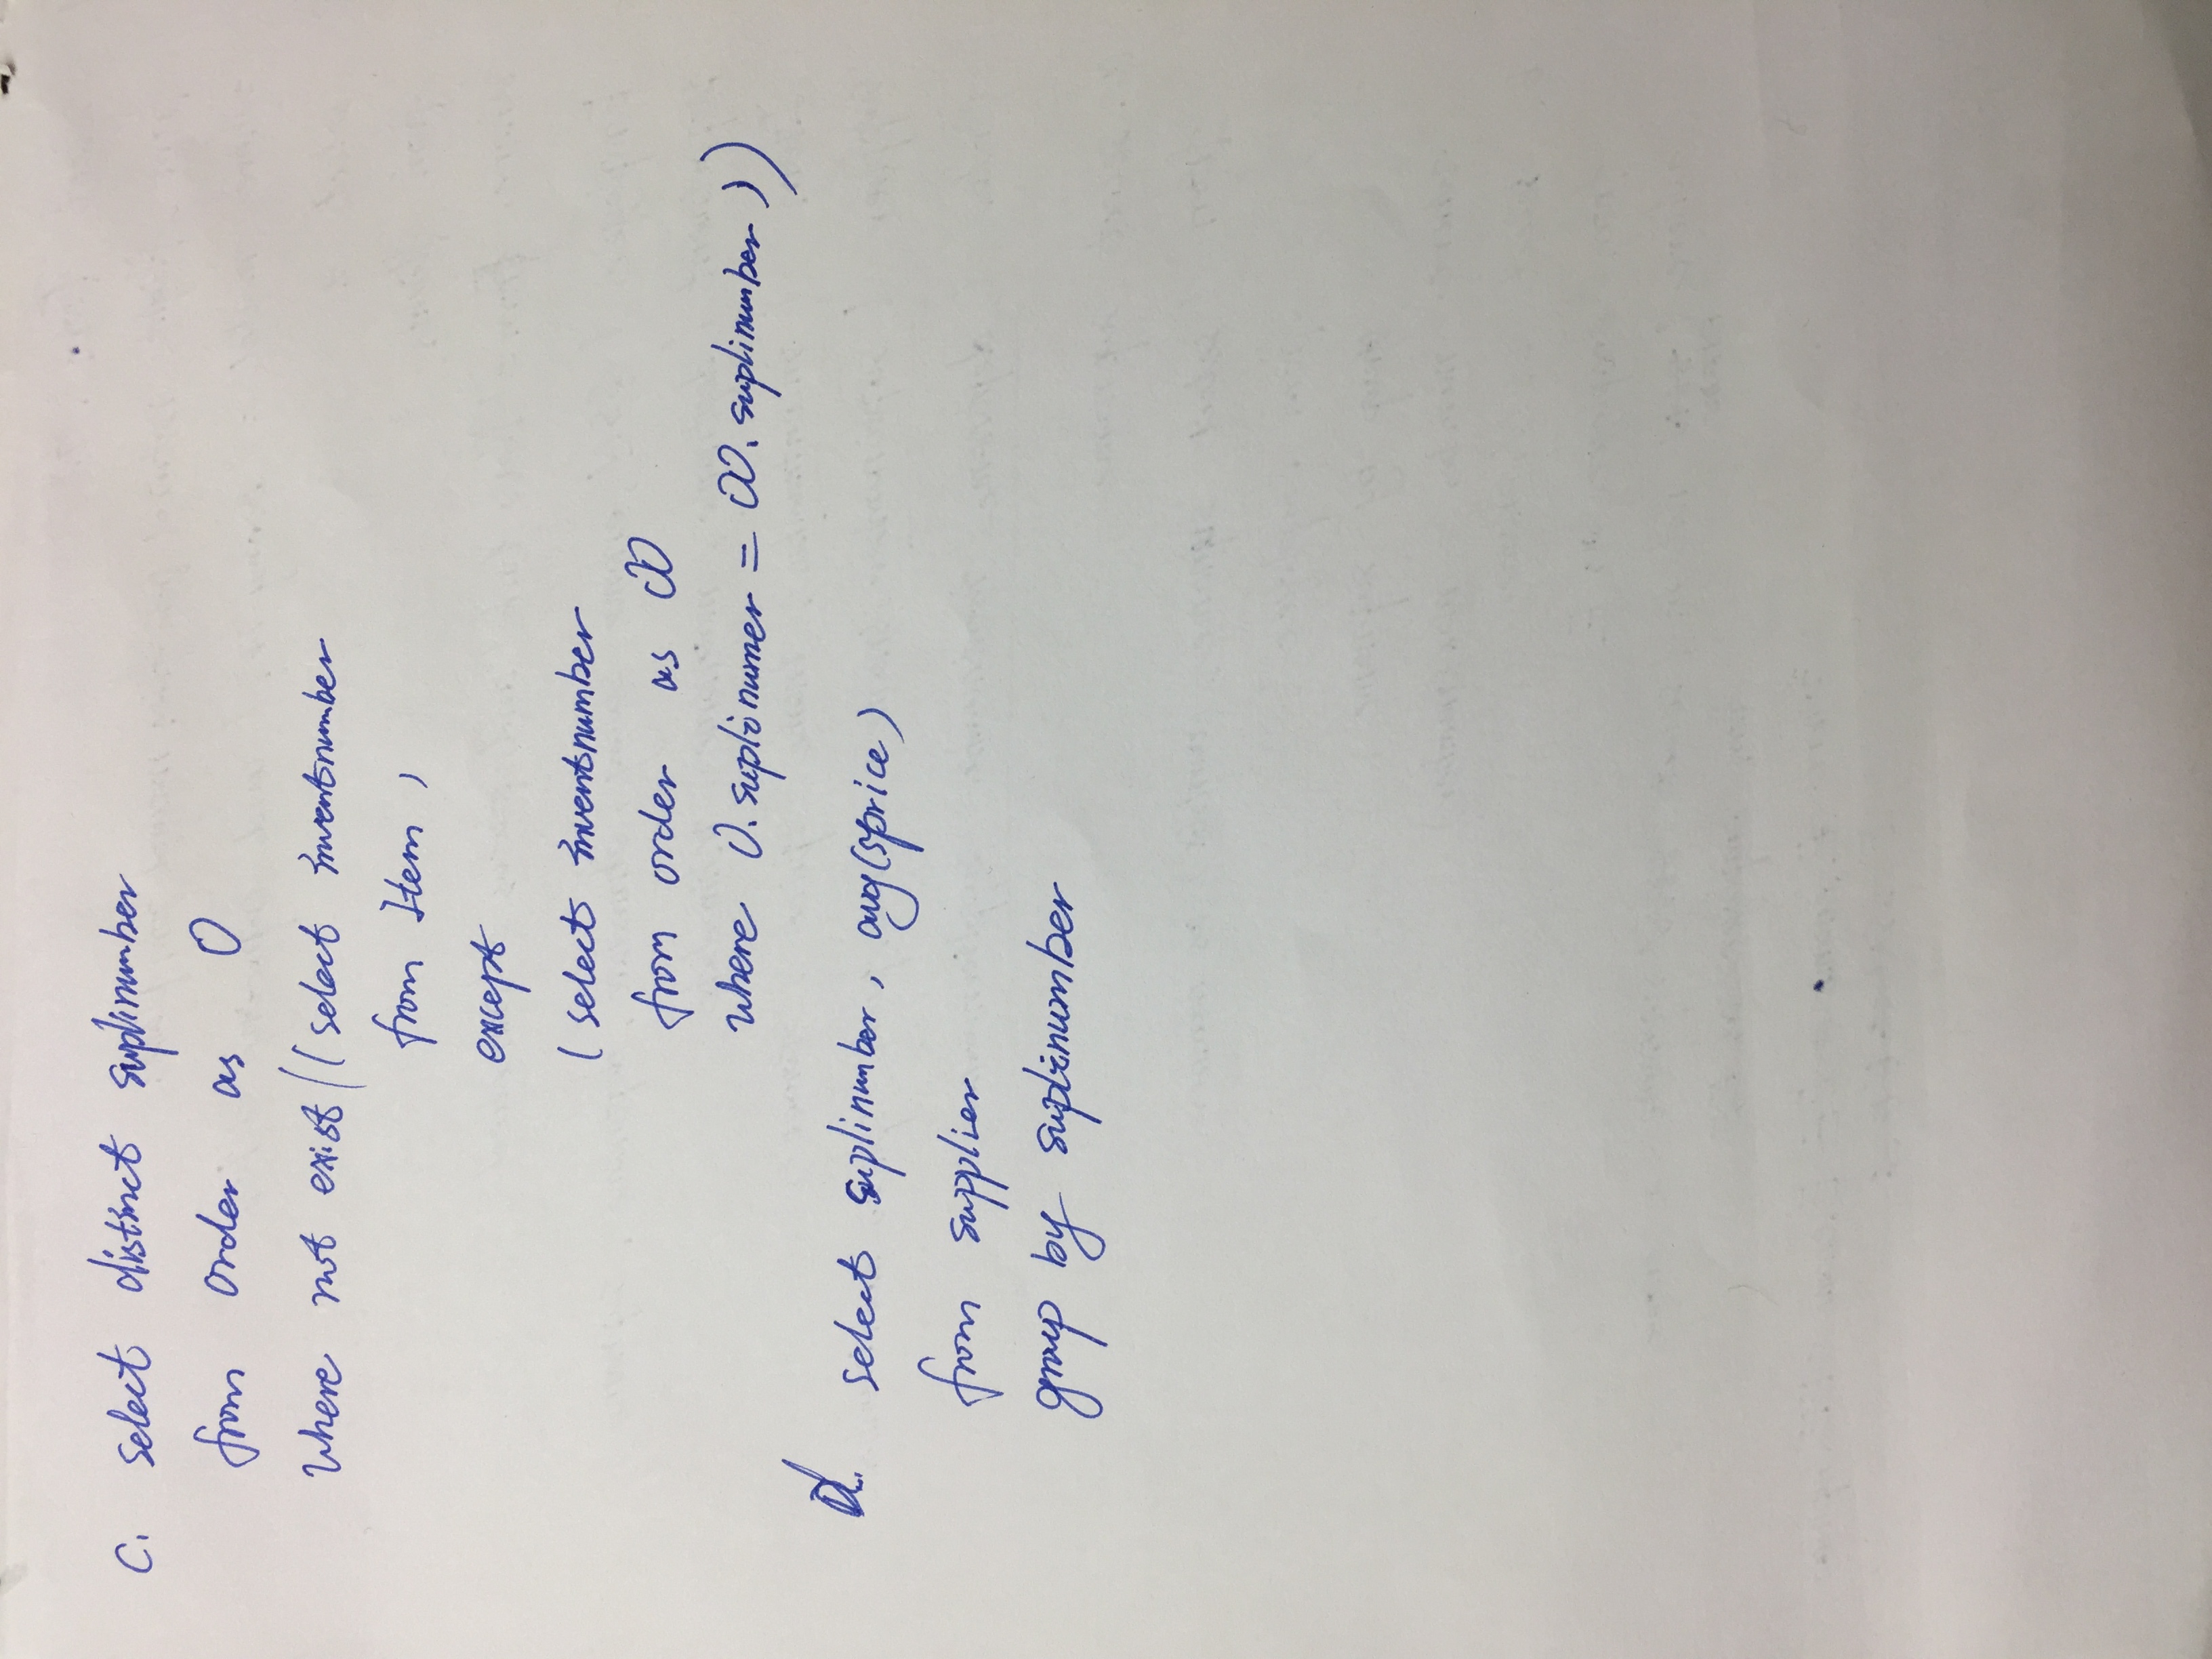 c. select distinct suplinumber
from order as O
where not exist ((select inventnumber
from Item )
except
(select inventnumber
from order as OO
where O.suplinumer = OO.suplinumber))
d. select suplinumber, avg(sprice)
from supplier
group by suplinumber